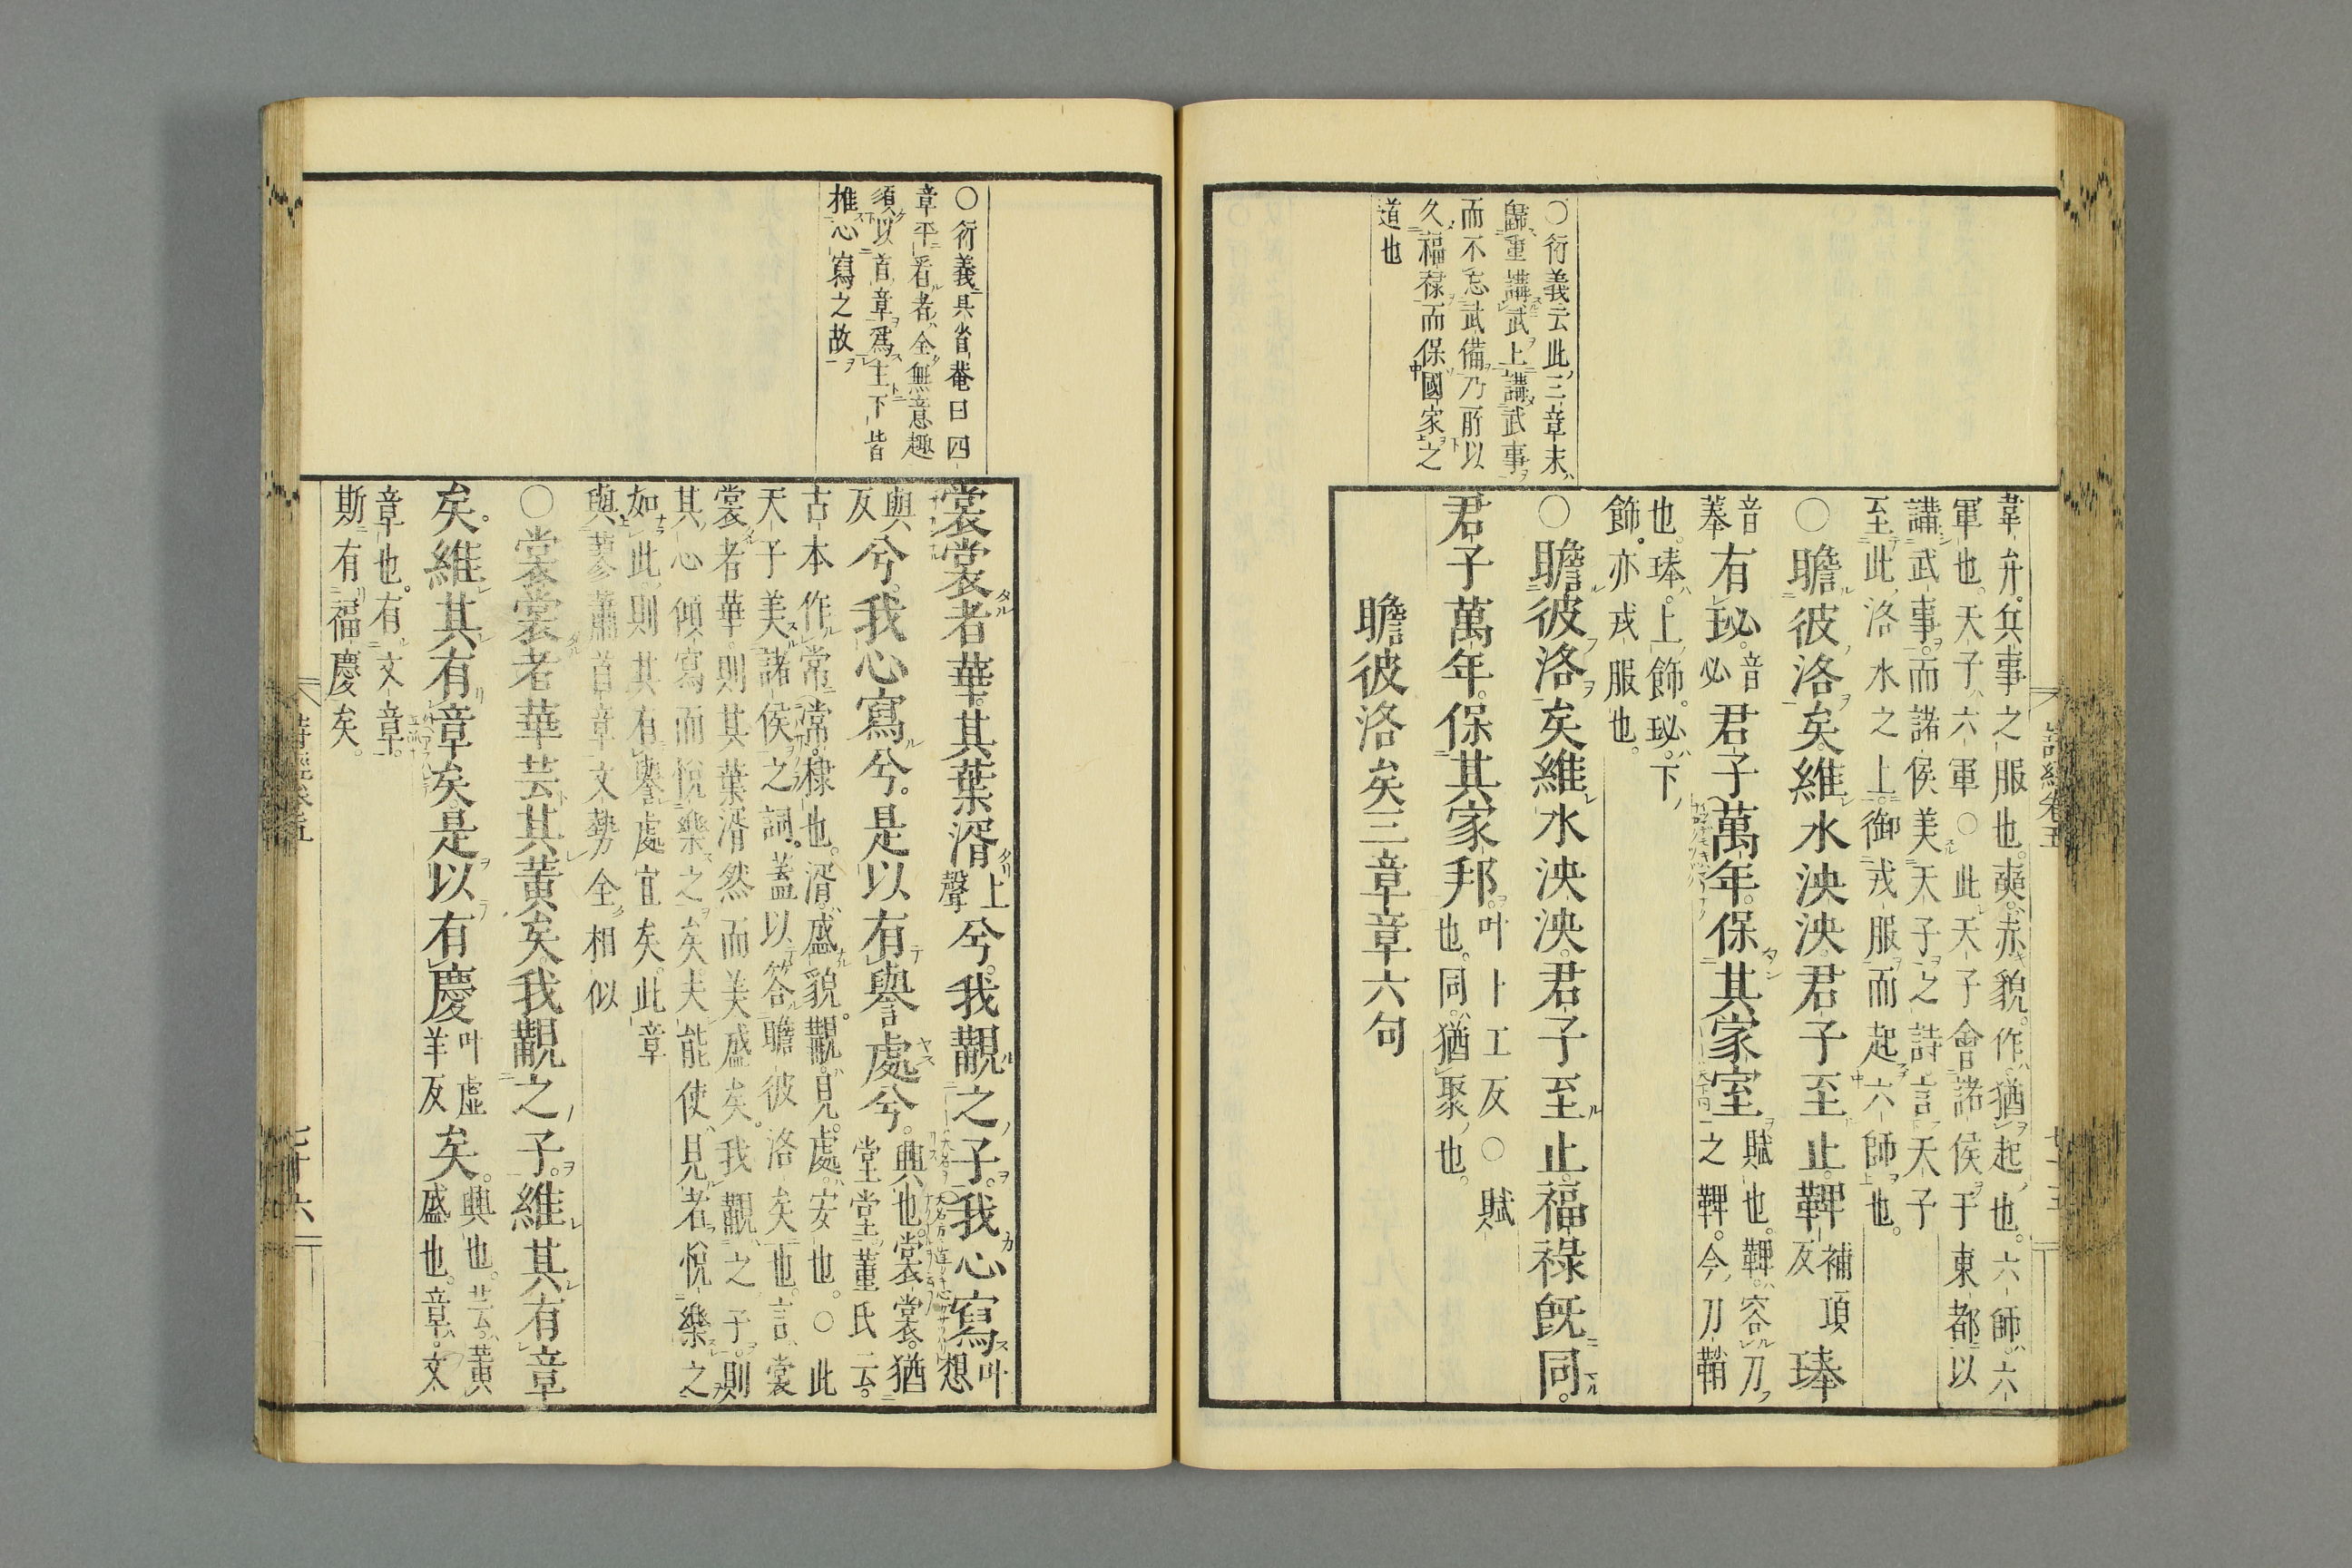 〇衍義云此三章末
歸重講武上講武事
而不忘武備乃所以
久福祿而保國家之
道也
韋弁兵事之服也。奭赤貌。作猶起也。六師六
軍也。天子六軍〇此天子會諸侯于東都以
講武事。而諸侯美天子之詩言天子
至此洛水之上。御戎服而起六師也。
〇瞻彼洛矣維水泱泱君子至止。鞞補項反琫
音菶有珌音必君子萬年。保其家室賦也。鞞容刀之鞞。今刀鞘
也。琫上飾。珌下
飾。亦戎服也。
〇瞻彼洛矣維水泱泱君子至止福祿旣同。
君子萬年。保其家邦。叶卜工反〇賦也。同猶聚也。
瞻彼洛矣三章章六句
〇衍義具省菴曰四
章平看者全無意趣
須以首章爲主下皆
推心寫之故
裳裳者華。其葉湑上聲兮。我覯之子。我心寫叶想
與反兮。我心寫兮。是以有譽處兮。興也。裳裳。猶堂堂董氏云。
古本作常常。棣也。湑盛貌。覯見。處安也。〇此
天子美諸侯之詞。蓋以答瞻彼洛矣也。言裳
裳者華。則其葉湑然而美盛矣。我覯之子。則
其心傾寫而悅樂之矣。夫能使見者悅樂之
如此則其有譽處宜矣。此章
與蓼蕭首章文勢全相似
〇裳裳者華芸其黃矣我覯之子。維其有章
矣。維其有章矣是以有慶叶虛羊反矣。興也。芸黃盛也。章文
章也。有文章。
斯有福慶矣。